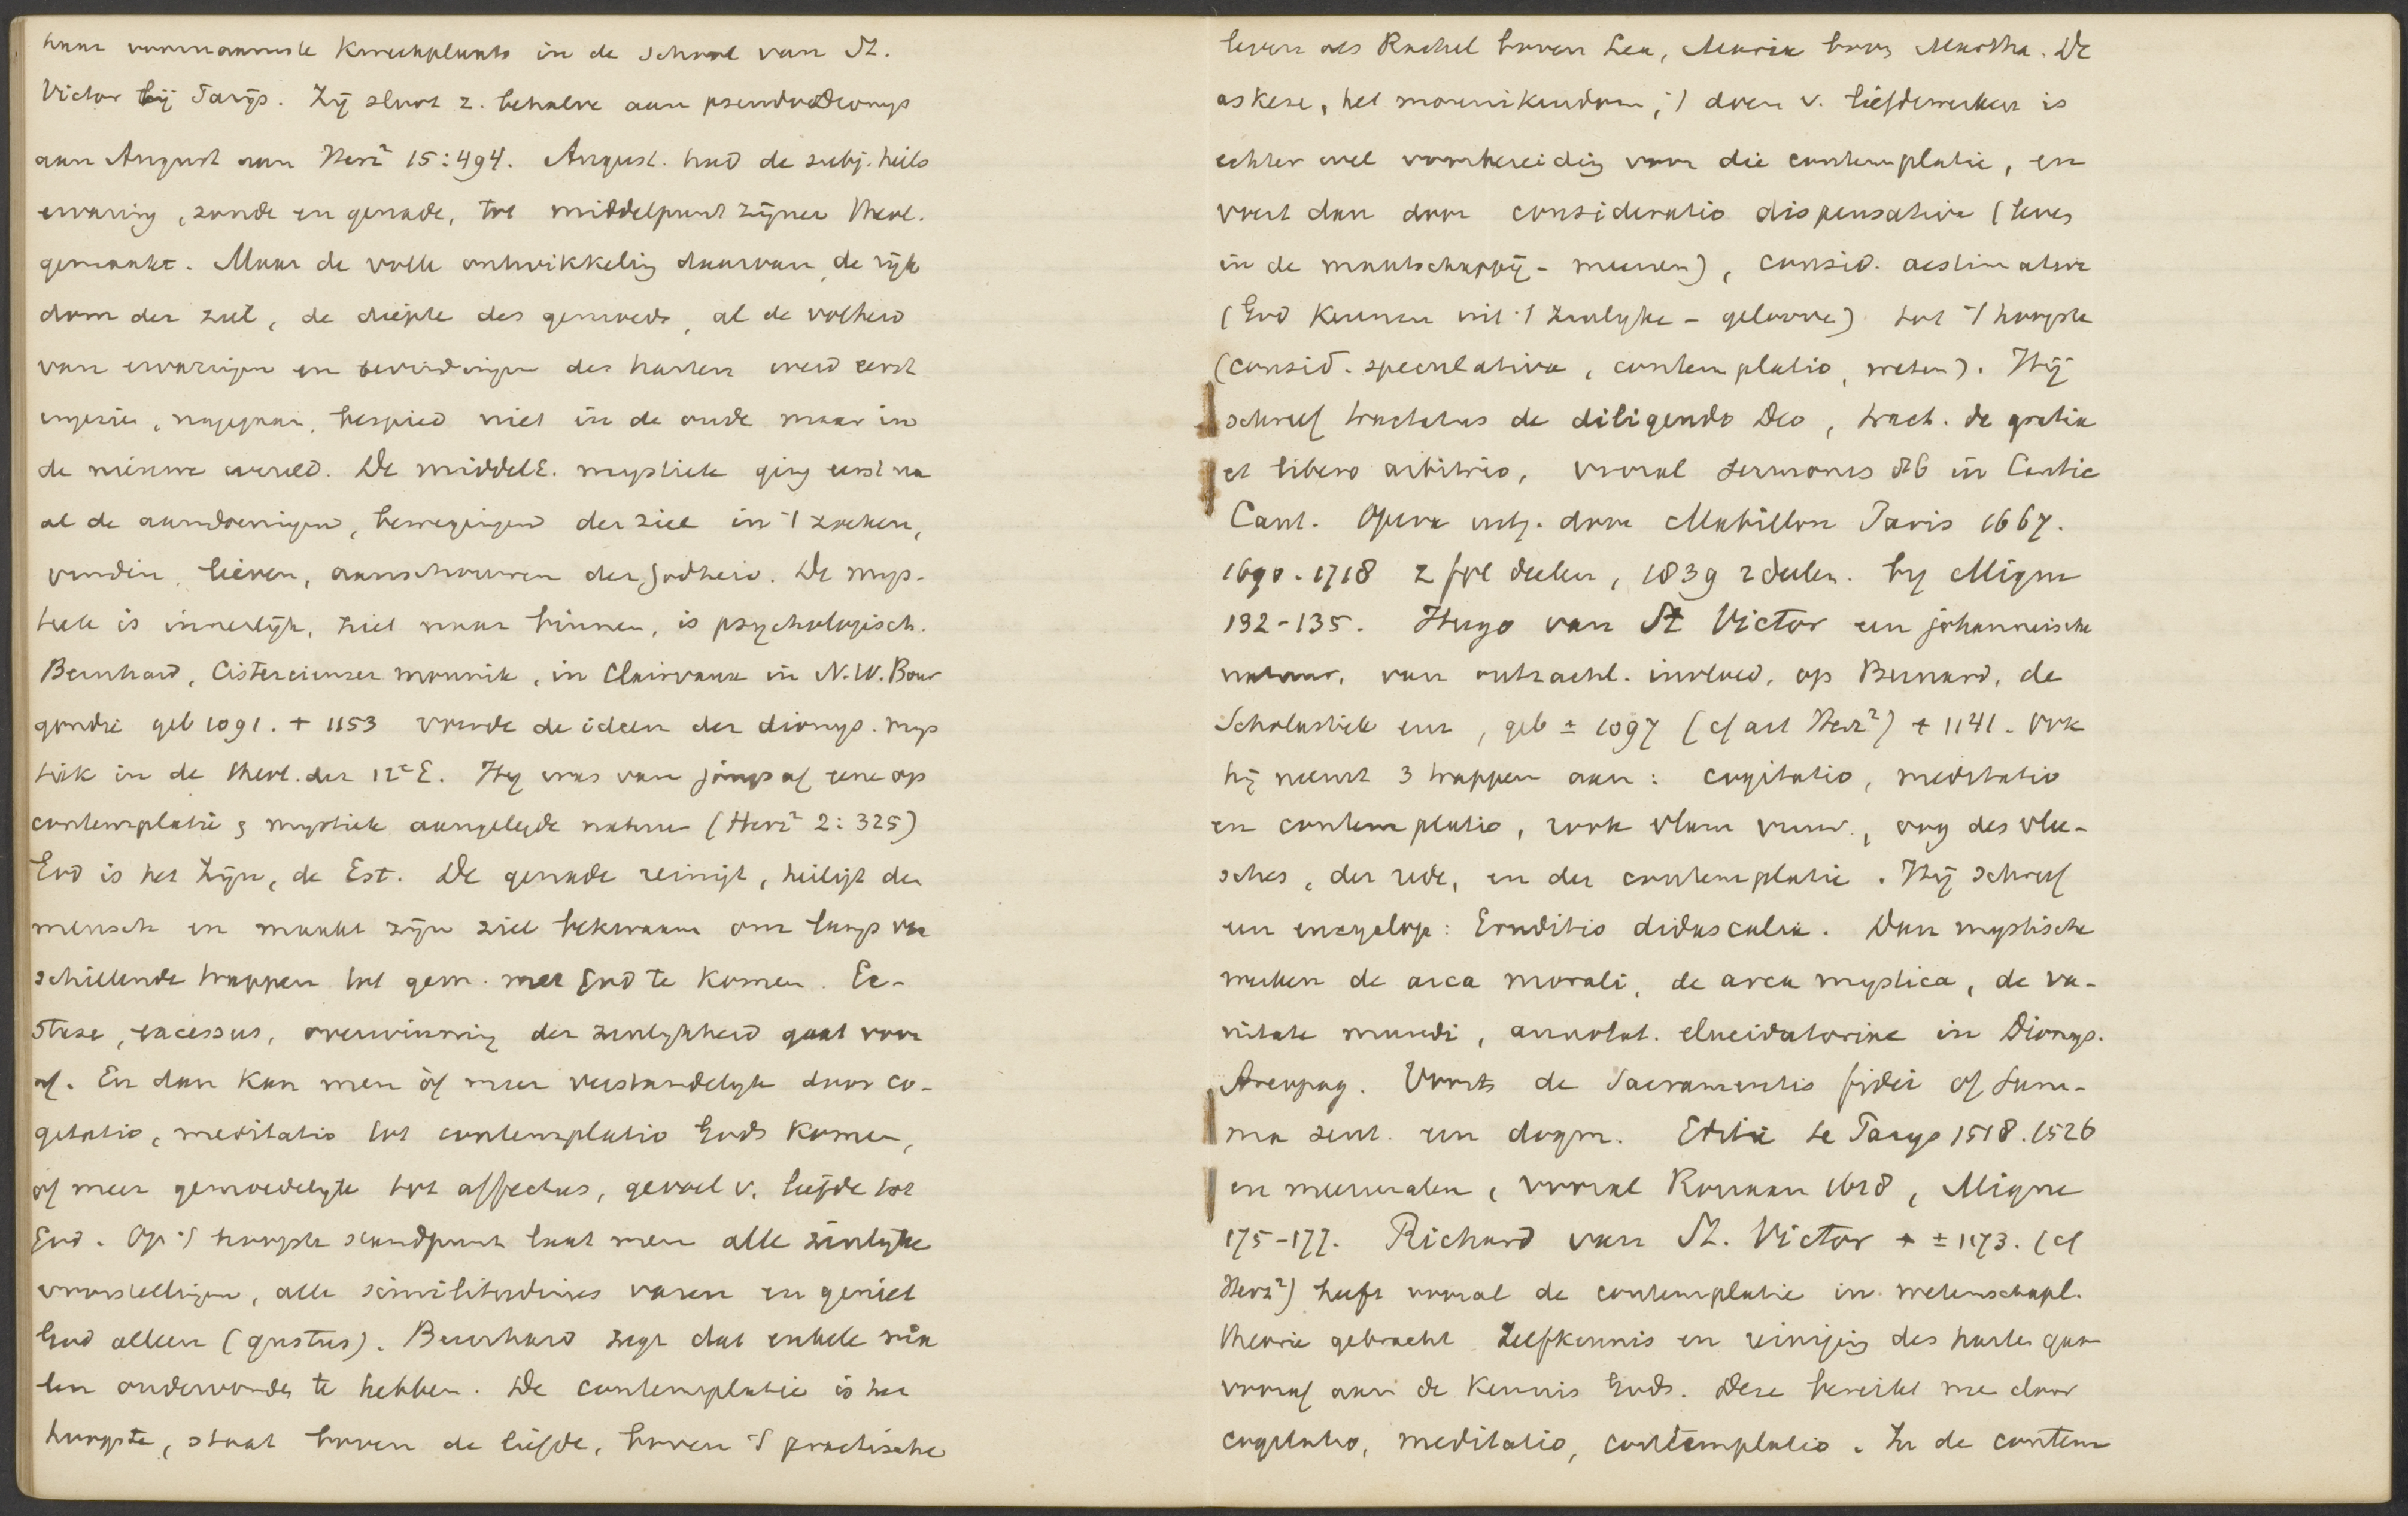 haar voornaamste kweekplaats in de school van St.
Victor bij Parijs. Zij sluit z. behalve aan pseudoDionys
aan August aan Herz² 15:494. August. had de subj. heils
ervaring, zonde en genade, tot middelpunt zijner theol.
gemaakt. Maar de volle ontwikkeling daarvan, de rijk
dom der ziel, de diepte des gemoeds, al de volheid
van ervaringen en bevindingen des harten werd eerst
ingezien, nagegaan, bespied niet in de oude maar in
de nieuwe wereld. De middelE. mystiek ging eerst na
al de aandoeningen, bewegingen der ziel in 't zoeken,
vinden, lieven, aanschouwen der Godheid. De mys-
tiek is innerlijk, ziet naar binnen, is psychologisch.
Bernhard, Cistercienser monnik, in Clairvaux in N.W. Bour
gondie geb 1091. + 1153 voerde de ideen der dionys. mys
tiek in de theol. der 12e E. Hij was van jongs af eene op
contemplatie & mystiek aangelegde natuur (Herz² 2:325)
God is het Zijn, de Est. De genade reinigt, heiligt den
mensch en maakt zijn ziel bekwaam om langs ver
schillende trappen tot gem. met God te komen. Ec-
stase, excessus, overwinning der zinlijkheid gaat voor
af. En dan kan men òf meer verstandelijk door co-
gitatio, meditatio tot contemplatio Gods komen,
òf meer gemoedelijk tot affectus, gevoel v. liefde tot
God. Op 't hoogste standpunt laat men alle zinlijke
voorstellingen, alle similitudines varen en geniet
God alleen (gustus). Bernhard zegt dat enkele ma
len ondervonden te hebben. De contemplatie is het
hoogste, staat boven de liefde, boven 't practische
leven als Rachel boven Lea, Maria boven Martha. De
askese, het monnikendom, 't doen v. liefdewerken is
echter wel voorbereiding voor die contemplatie, en
voert dan door consideratio dispensativa (leven
in de maatschappij - meenen), consid. aestimativa
(God kennen uit 't zinlijke - gelooven) tot 't hoogste
(consid. speculativa, contemplatio, weten). Hij
schreef tractatus de diligendo Deo, tract. de gratia
et libero arbitrio, vooral sermones 86 in Cantic
Cant. Opera uitg. door Mabillon Paris 1667.
1690. 1718 2 fol deelen, 1839 2 deelen. bij Migne
182-185. Hugo van St Victor een johanneische
natuur, van ontzachl. invloed, op Bernard, de
Scholastiek enz, geb ± 1097 (cf art Herz²) + 1141. Ook
hij neemt 3 trappen aan: cogitatio, meditatio
en contemplatio, rook vlam vuur, oog des vlee-
sches, der rede, en der contemplatie. Hij schreef
een encyclop: Eruditio didascalia. Dan mystische
werken de arca morali, de arca mystica, de va-
nitate mundi, annotat. elucidatoriae in Dionys.
Areopag. Voorts de Sacramentis fidei of Sum-
ma sent. een dogm. Editie te Parijs 1518. 1526
en meermalen, vooral Rouaan 1648, Migne
175-177. Richard van St. Victor + ± 1173. (cf
Herz²) heeft vooral de contemplatie in wetenschapl.
theorie gebracht Zelfkennis en reiniging des harten gaan
vooraf aan de kennis Gods. Deze bereikt me door
cogitatio, meditatio, contemplatio. In de contem